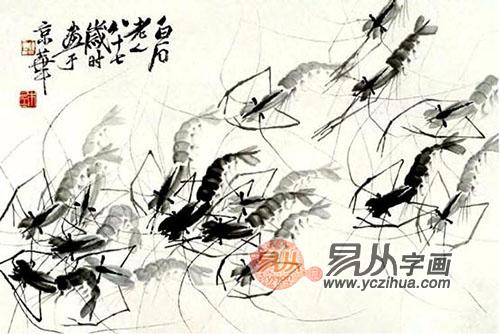 白石
老人
八十七
歲时
画于
京華
易从
易从字画
www.yczihua.com